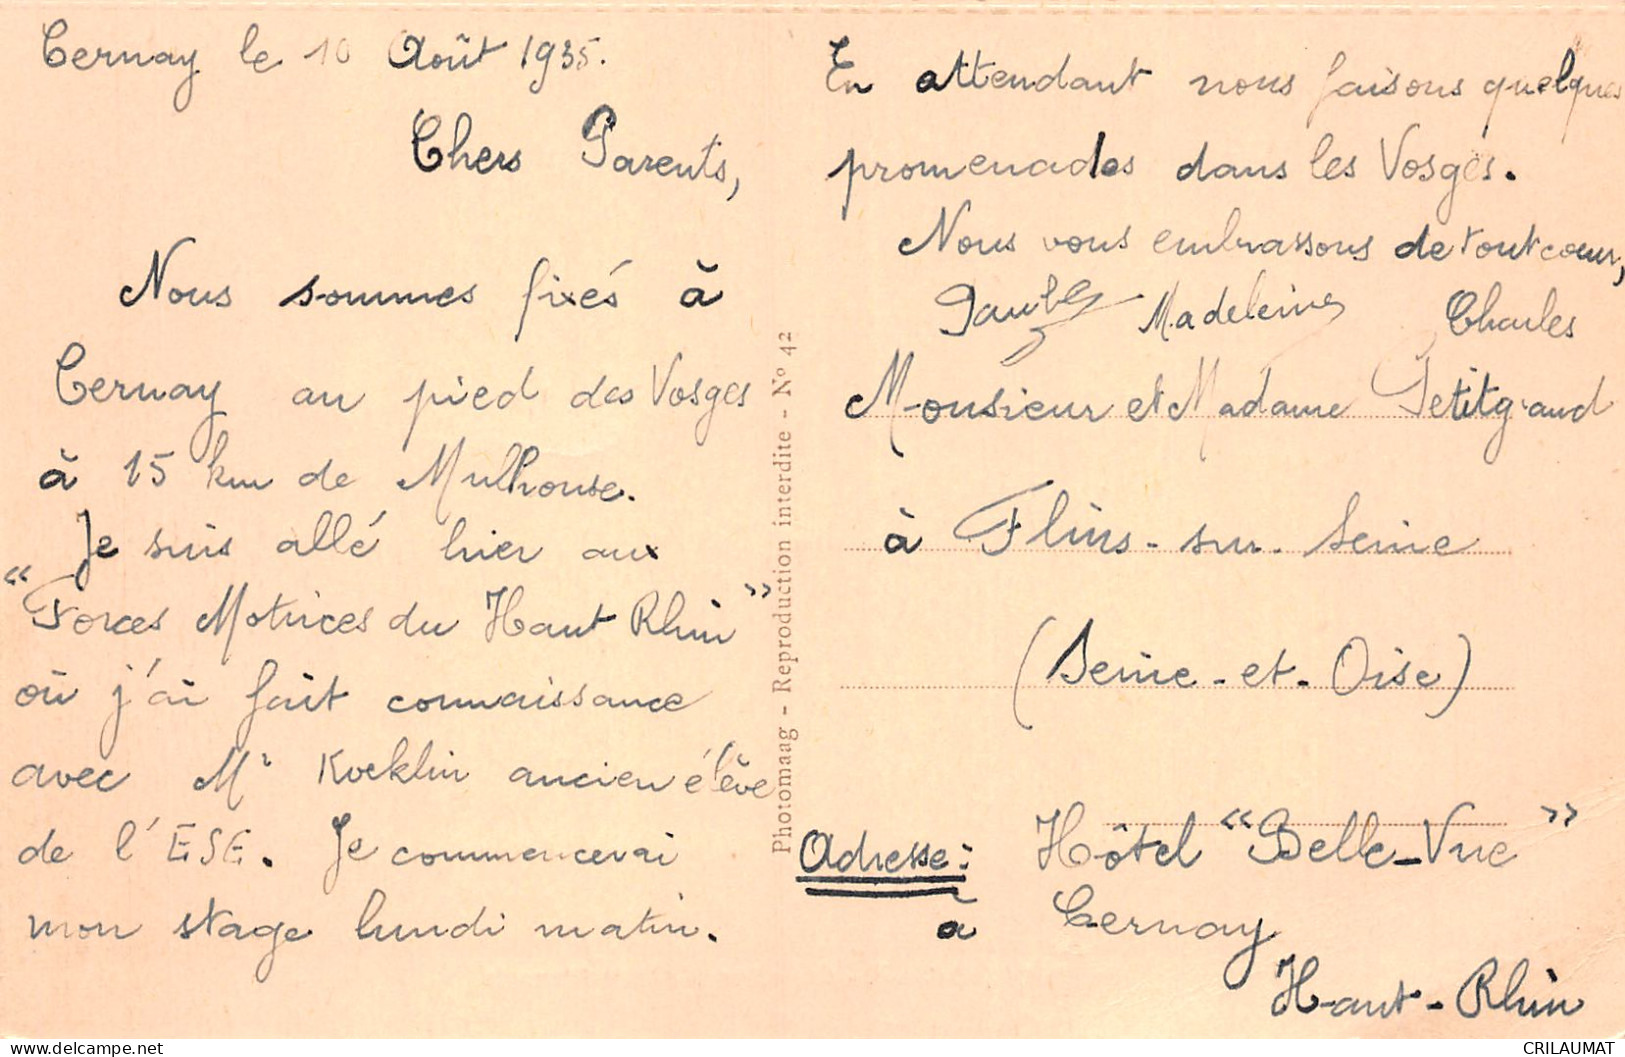 Cernay le 10 Août 1935.
Chers Parents,
Nous sommes fixés à
Cernay au pied des Vosges
à 15 km de Mulhouse.
Je suis allé hier aux
"Forces Motrices du Haut Rhin"
où j'ai fait connaissance
avec Mr Koeklin ancien élève
de l'ESE. Je commencerai
mon stage lundi matin.
Photomag - Reproduction interdite - N° 42
En attendant nous faisons quelques
promenades dans les Vosges.
Nous vous embrassons de tout coeur,
Madeleine Charles
Monsieur et Madame Petitgrand
à Flins-sur-Seine
(Seine-et-Oise)
Adresse: Hôtel "Belle-Vue"
à Cernay
Haut-Rhin
delcampe.net
CRILAUMAT